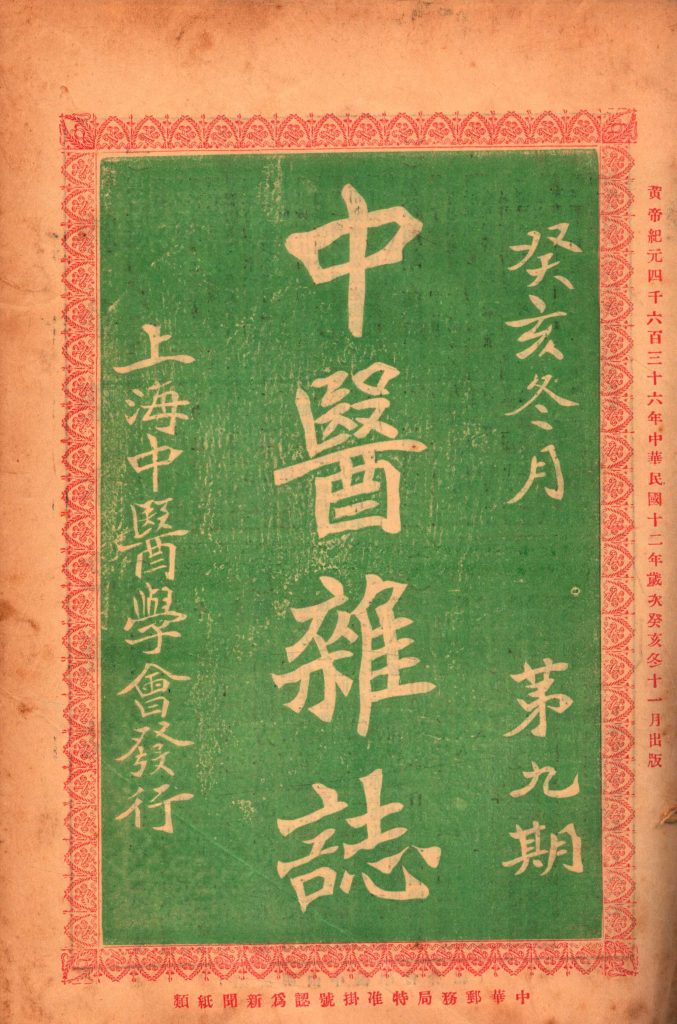 黃帝紀元四千六百三十六年中華民國十二年歲次癸亥冬十一月出版
癸亥冬月 第九期
中醫雜誌
上海中醫學會發行
中華郵務局特准掛號認爲新聞紙類